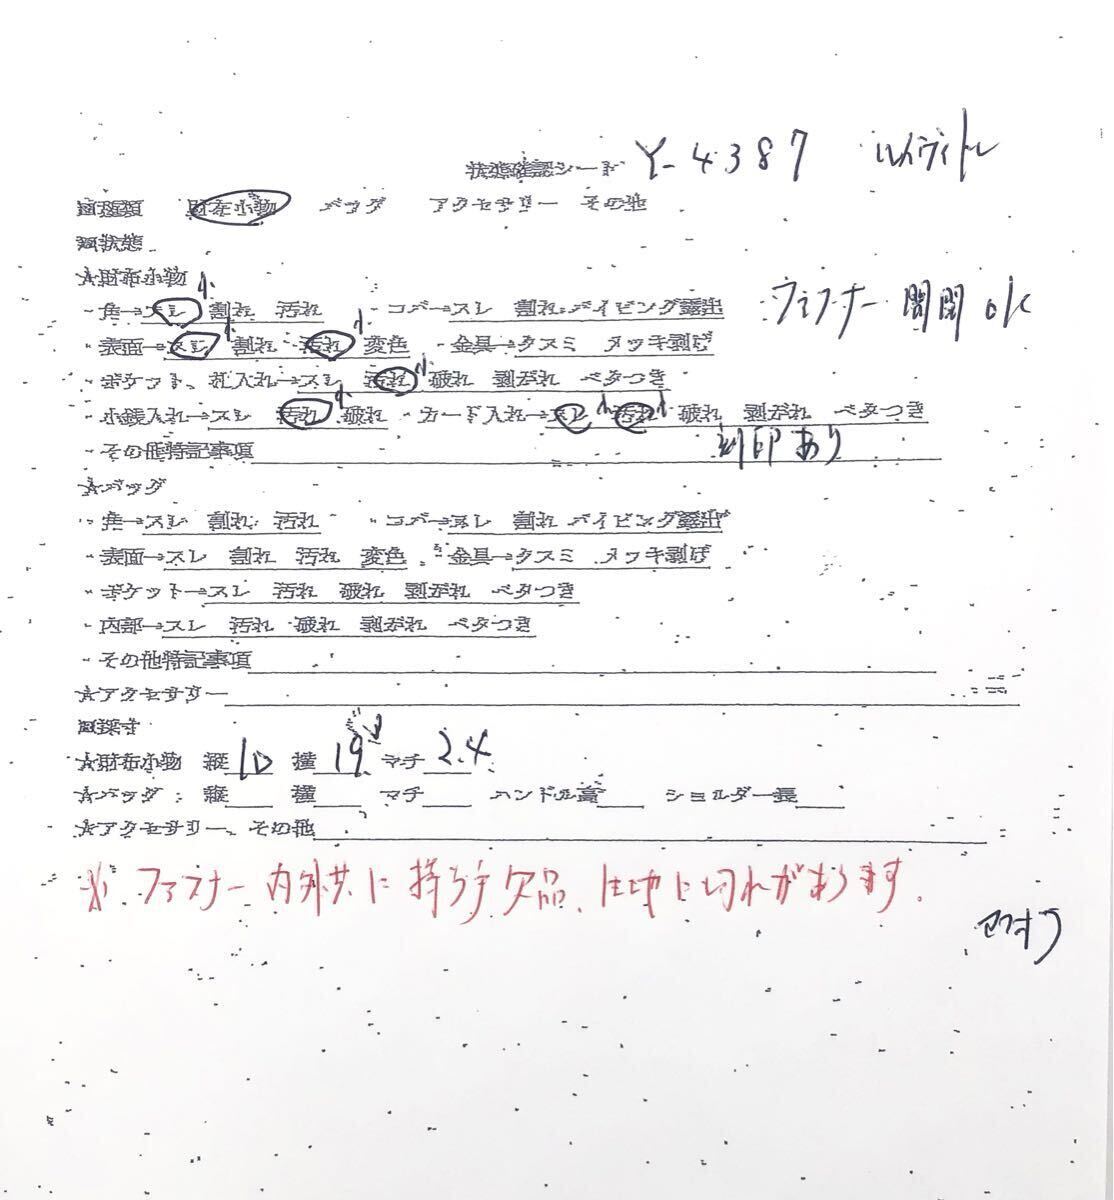 状態確認シート Y-4387 ルイヴィトン
■種類 財布小物 バッグ アクセサリー その他
■状態
★財布小物
・角→スレ 小 割れ 汚れ ・コバ→スレ 割れ パイピング露出 ファスナー開閉OK
・表面→スレ 小 割れ 汚れ 小 変色 ・金具→クスミ メッキ剥げ
・ポケット、札入れ→スレ 汚れ 小 破れ 剥がれ ベタつき
・小銭入れ→スレ 汚れ 小 破れ ・カード入れ→スレ 小 汚れ 小 破れ 剥がれ ベタつき
・その他特記事項 刻印あり
★バッグ
・角→スレ 割れ 汚れ ・コバ→スレ 割れ パイピング露出
・表面→スレ 割れ 汚れ 変色 ・金具→クスミ メッキ剥げ
・ポケット→スレ 汚れ 破れ 剥がれ ベタつき
・内部→スレ 汚れ 破れ 剥がれ ベタつき
・その他特記事項
★アクセサリー
■採寸
★財布小物 縦 10 横 19 マチ 2.4
★バッグ 縦 横 マチ ハンドル高 ショルダー長
★アクセサリー、その他
※ ファスナー内外共に持ち手欠品、生地に切れがあります。